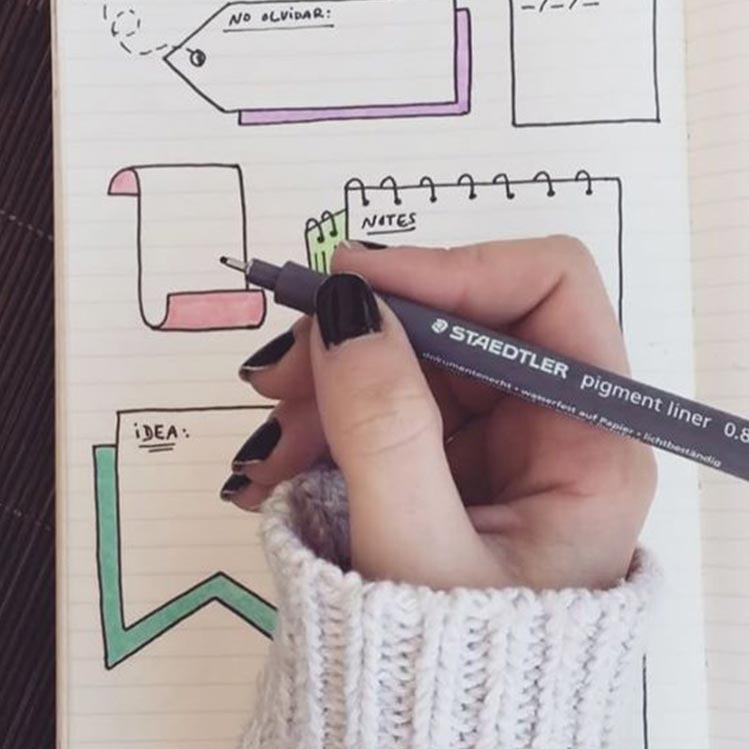 NO OLVIDAR:
-/-/-
NOTES
STAEDTLER pigment liner 0.8
dokumentenecht • wasserfest auf Papier • lichtbeständig
iDEA: